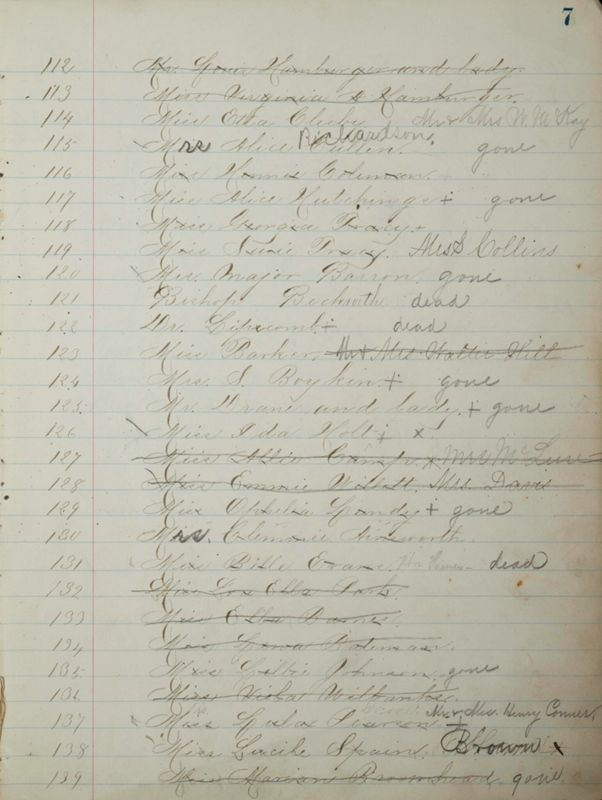 7
112 Mr. Louis Hamburger and lady.
113 Miss Virginia Hamburger.
114 Miss Etta Mr & Mrs W. McKay
Richardson
115 Mrs Alice Cullen. gone
116 Miss Coleman.
117 Miss Alice Hutchings + gone
118 Miss Georgia Tracy +
119 Miss Susie Tracy. Mrs S Collins
120 Mrs. Major Barron. gone
121 Bishop Beckwith dead
122 Dr. Lipscomb + dead
123 Miss Barker. Mr & Mrs Walter Hill
124 Mrs. S. Boykin. + gone
125 Mr. Drane and lady. + gone
126 Miss Ida Holt + x
127 Miss Allie Camp. x Mrs
128 Miss Emmie Willett. Mrs Davis
129 Miss Ophelia + gone
130 Mrs. Clemmie
131 Miss Bille Evans. dead
132 Miss Lou Ella Park.
133 Miss Ella Barnes.
134 Miss Bateman.
135 Miss Lillie Johnson. gone
136 Miss Viola
137 Miss Mr. & Mrs. Henry Conner.
138 Miss Lucile Spain. Brown x
139 Miss Marian gone